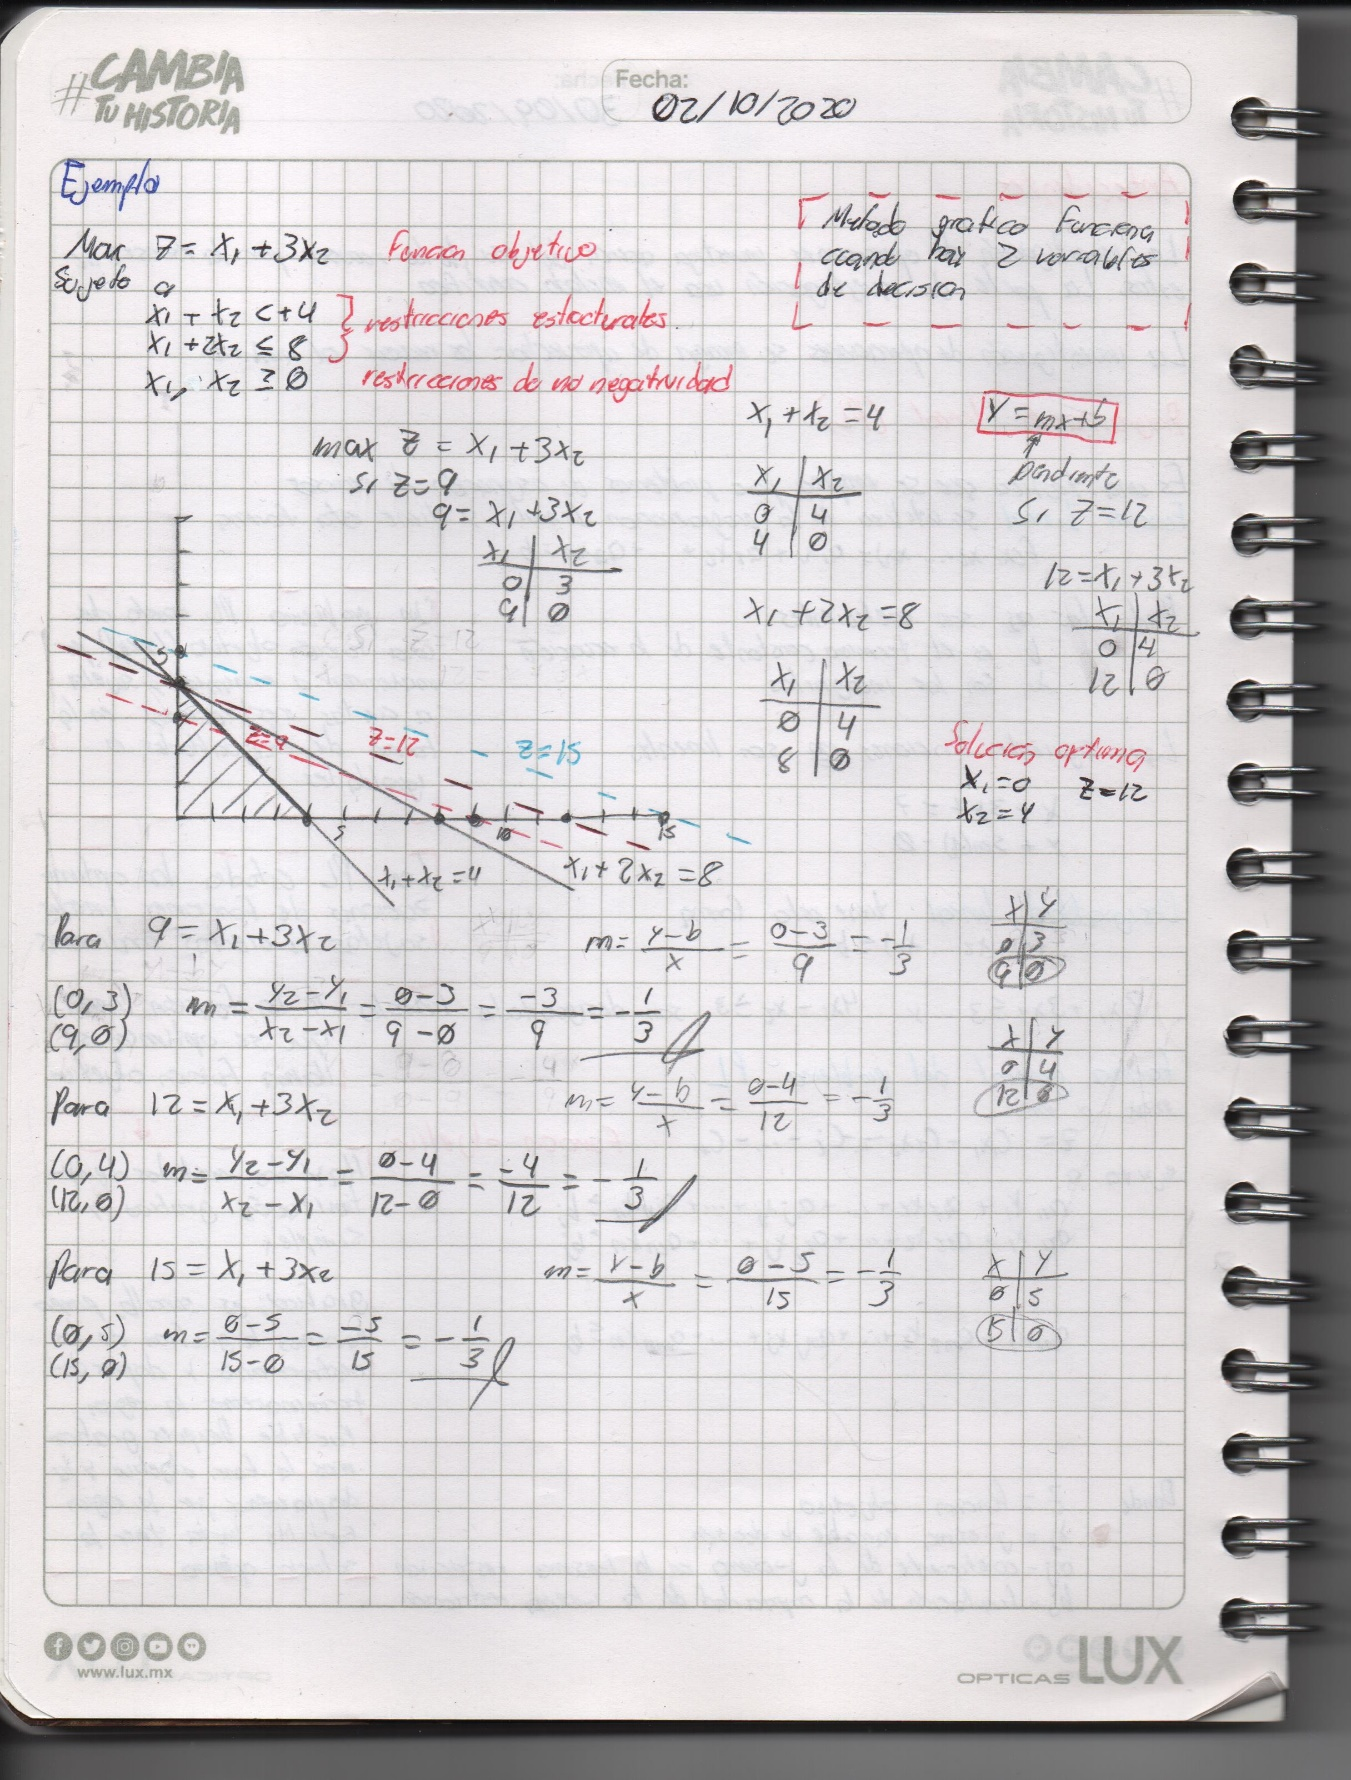 #CAMBIA
TU HISTORIA
Fecha:
02/10/2020
Ejemplo
Max z = x₁ + 3x₂ Funcion objetivo
Sujeto a
x₁ + x₂ <+4 } restricciones estructurales
x₁ + 2x₂ ≤ 8
x₁, x₂ ≥ 0 restricciones de no negatividad
Metodo grafico Funciona
cuando hay 2 variables
de decision
max z = x₁ + 3x₂
si z=9
9 = x₁ + 3x₂
x₁ | x₂
0 | 3
9 | 0
x₁ + x₂ = 4
x₁ | x₂
0 | 4
4 | 0
x₁ + 2x₂ = 8
x₁ | x₂
0 | 4
8 | 0
Y = mx+b
Pendiente
Si z=12
12 = x₁ + 3x₂
x₁ | x₂
0 | 4
12 | 0
Solucion optima
x₁=0 z=12
x₂=4
5
z=9 z=12 z=15
5 10 15
x₁+x₂=4 x₁+2x₂=8
Para 9 = x₁ + 3x₂ m = y-b/x = 0-3/9 = -1/3
x | y
0 | 3
9 | 0
(0,3) m = y₂-y₁/x₂-x₁ = 0-3/9-0 = -3/9 = -1/3
(9,0)
x | y
0 | 4
12 | 0
Para 12 = x₁ + 3x₂ m = y-b/x = 0-4/12 = -1/3
(0,4) m = y₂-y₁/x₂-x₁ = 0-4/12-0 = -4/12 = -1/3
(12,0)
Para 15 = x₁ + 3x₂ m = y-b/x = 0-5/15 = -1/3
x | y
0 | 5
15 | 0
(0,5) m = 0-5/15-0 = -5/15 = -1/3
(15,0)
www.lux.mx
OPTICAS LUX